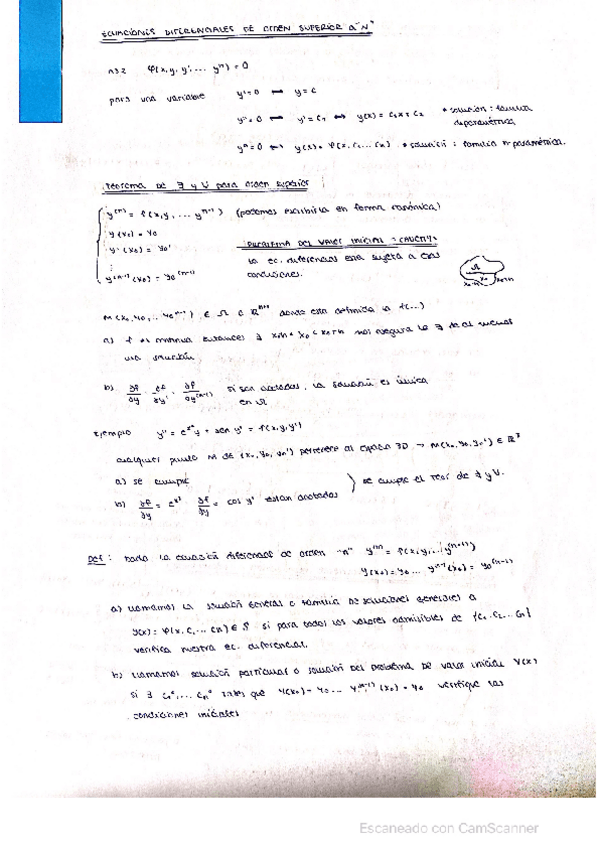 ECUACIONES DIFERENCIALES DE ORDEN SUPERIOR A "N"
n≥2 φ(x, y, y', ... yⁿ) = 0
para una variable y' = 0 ⟷ y = C
y'' = 0 ⟷ y' = C₁ ⟷ y(x) = C₁x + C₂ * solución: familia
biparamétrica
yⁿ = 0 ⟷ y(x) = φ(x, C₁ ... Cn) * solución: familia n-paramétrica.
Teorema de ∃ y U para orden superior
y⁽ⁿ⁾ = f(x, y, ... yⁿ⁻¹) (podemos escribirla en forma canónica)
y(x₀) = y₀
y'(x₀) = y₀' PROBLEMA DEL VALOR INICIAL (CAUCHY):
la ec. diferencial está sujeta a esas
⋮ condiciones.
y⁽ⁿ⁻¹⁾(x₀) = y₀⁽ⁿ⁻¹⁾
Ω
x₀-h x₀ x₀+h
M(x₀, y₀, .. y₀ⁿ⁻¹) ∈ Ω ⊂ ℝⁿ⁺¹ donde esta definida la f(...)
a) f es continua entonces ∃ x₀-h < x₀ < x₀+h nos asegura la ∃ de al menos
una solución
b) ∂f/∂y, ∂f/∂y', ∂f/∂y⁽ⁿ⁻¹⁾ si son acotadas, la solución es única
en Ω
Ejemplo y'' = eˣ²y + sen y' = f(x, y, y')
cualquier punto M de (x₀, y₀, y₀') pertenece al espacio 3D → M(x₀, y₀, y₀') ∈ ℝ³
a) se cumple
b) ∂f/∂y = eˣ² ∂f/∂y' = cos y' estan acotadas } se cumple el teor de ∃ y U.
Def: Dada la ecuación diferencial de orden "n" y⁽ⁿ⁾ = f(x, y, ... y⁽ⁿ⁻¹⁾)
y(x₀) = y₀ ... yⁿ⁻¹(x₀) = y₀⁽ⁿ⁻¹⁾
a) llamamos la solución general o familia de soluciones generales a
y(x) = φ(x, C₁ ... Cn) ∈ si para todos los valores admisibles de {C₁, C₂ ... Cn}
verifica nuestra ec. diferencial.
b) llamamos solución particular o solución del problema de valor inicial Y(x)
si ∃ C₁⁰, ... Cn⁰ tales que y(x₀) = y₀ ... y⁽ⁿ⁻¹⁾(x₀) = y₀ verifique las
condiciones iniciales
Escaneado con CamScanner